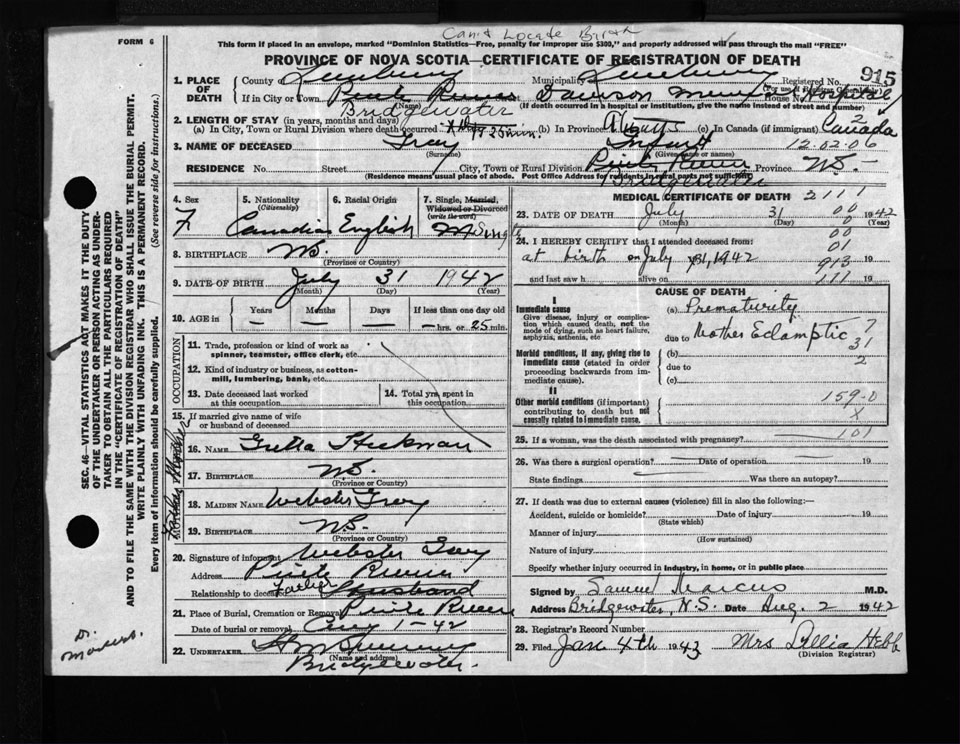 Can't Locate Birth
FORM 6
This form if placed in an envelope, marked "Dominion Statistics—Free, penalty for improper use $300," and properly addressed will pass through the mail "FREE"
PROVINCE OF NOVA SCOTIA—CERTIFICATE OF REGISTRATION OF DEATH
915
1. PLACE OF DEATH
County Lunenburg Municipality Lunenburg Registered No.
(For use of Registrar General Only)
If in City or Town Dawson Memorial Hospital House No.
(Name) (If death occurred in a hospital or institution, give the name instead of street and number)
Bridgewater
2. LENGTH OF STAY (in years, months and days)
(a) In City, Town or Rural Division where death occurred 25 min. (b) In Province (c) In Canada (if immigrant) Canada
2
3. NAME OF DECEASED Grey Infant 12.02.06
(Surname) (Given name or names)
RESIDENCE No. Street City, Town or Rural Division Province N.S.
(Residence means usual place of abode. Post Office Address for residents in rural parts not sufficient)
Bridgewater
4. Sex F
5. Nationality (Citizenship) Canadian
6. Racial Origin English
7. Single, Married, Widowed or Divorced (write the word) Single
8. BIRTHPLACE N.S.
(Province or Country)
9. DATE OF BIRTH July 31 1942
(Month) (Day) (Year)
10. AGE in Years Months Days If less than one day old
— — — — hrs. or 25 min.
OCCUPATION
11. Trade, profession or kind of work as spinner, teamster, office clerk, etc.
12. Kind of industry or business, as cotton-mill, lumbering, bank, etc.
13. Date deceased last worked at this occupation
14. Total yrs. spent in this occupation
15. If married give name of wife or husband of deceased
16. NAME
17. BIRTHPLACE N.S.
(Province or Country)
18. MAIDEN NAME Webster Grey
19. BIRTHPLACE N.S.
(Province or Country)
20. Signature of informant Webster Grey
Address
Relationship to deceased Father Husband
21. Place of Burial, Cremation or Removal
Date of burial or removal Aug 1-42
22. UNDERTAKER
(Name and address)
Bridgewater.
MEDICAL CERTIFICATE OF DEATH 2111
23. DATE OF DEATH July 31 1942
(Month) (Day) (Year)
00
24. I HEREBY CERTIFY that I attended deceased from: 01
at birth on July 31, 1942 913 19
and last saw h alive on 111 19
CAUSE OF DEATH
I
Immediate cause
Give disease, injury or complication which caused death, not the mode of dying, such as heart failure, asphyxia, asthenia, etc
(a) Prematurity
due to Mother Eclamptic ?
31
Morbid conditions, if any, giving rise to immediate cause (stated in order proceeding backwards from immediate cause).
(b)
2
due to
(c)
II
Other morbid conditions (if important) contributing to death but not causally related to immediate cause.
159-0
X
25. If a woman, was the death associated with pregnancy? 101
26. Was there a surgical operation? Date of operation 19
State findings Was there an autopsy?
27. If death was due to external causes (violence) fill in also the following:—
Accident, suicide or homicide? Date of injury 19
(State which)
Manner of injury
(How sustained)
Nature of injury
Specify whether injury occurred in industry, in home, or in public place
Signed by Samuel Marcus M.D.
Address Bridgewater, N.S. Date Aug. 2 1942
28. Registrar's Record Number
29. Filed Jan 4th 1943 Mrs Lillia Hebb
(Division Registrar)
SEC. 46—VITAL STATISTICS ACT MAKES IT THE DUTY OF THE UNDERTAKER OR PERSON ACTING AS UNDERTAKER TO OBTAIN ALL THE PARTICULARS REQUIRED IN THE "CERTIFICATE OF REGISTRATION OF DEATH"
AND TO FILE THE SAME WITH THE DIVISION REGISTRAR WHO SHALL ISSUE THE BURIAL PERMIT.
WRITE PLAINLY WITH UNFADING INK. THIS IS A PERMANENT RECORD.
Every item of information should be carefully supplied. (See reverse side for instructions.)
Dr. Marcus.